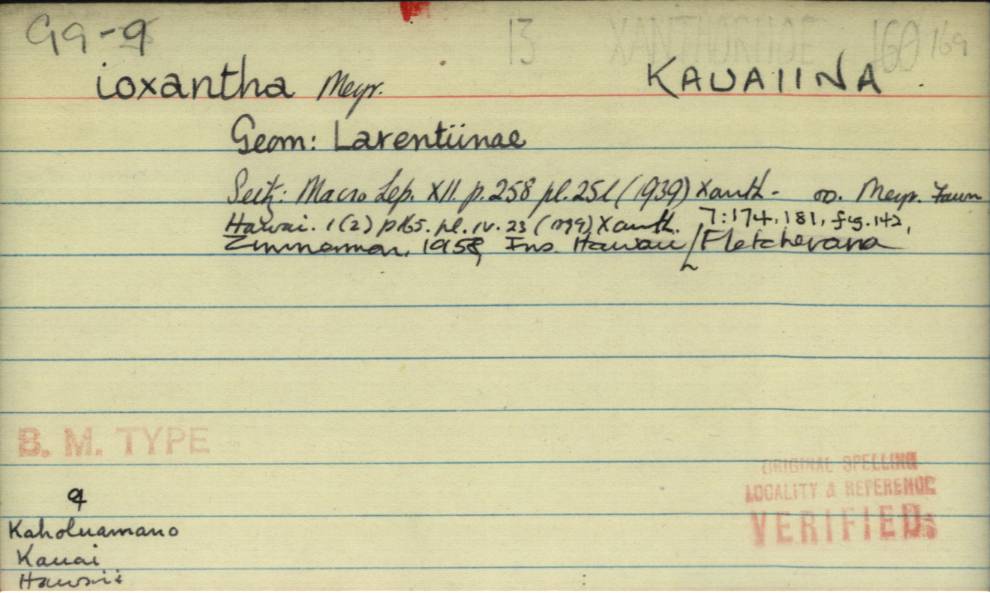 G9-9 13 XANTHORHOE 160 169
ioxantha Meyr. KAUAIINA
Geom: Larentiinae
Seitz: Macro Lep. XII. p.258 pl.25l (1939) Xanth- Meyr. Faun
Hawai. 1(2) pl. IV. 23 (1899) Xanth. 7:174, 181, fig. 142,
Zimmerman, 1958, Ins. Hawaii / Fletcherana
B. M. TYPE
ORIGINAL SPELLING
LOCALITY & REFERENCE
VERIFIED
♀
Kaholuamano
Kauai
Hawaii